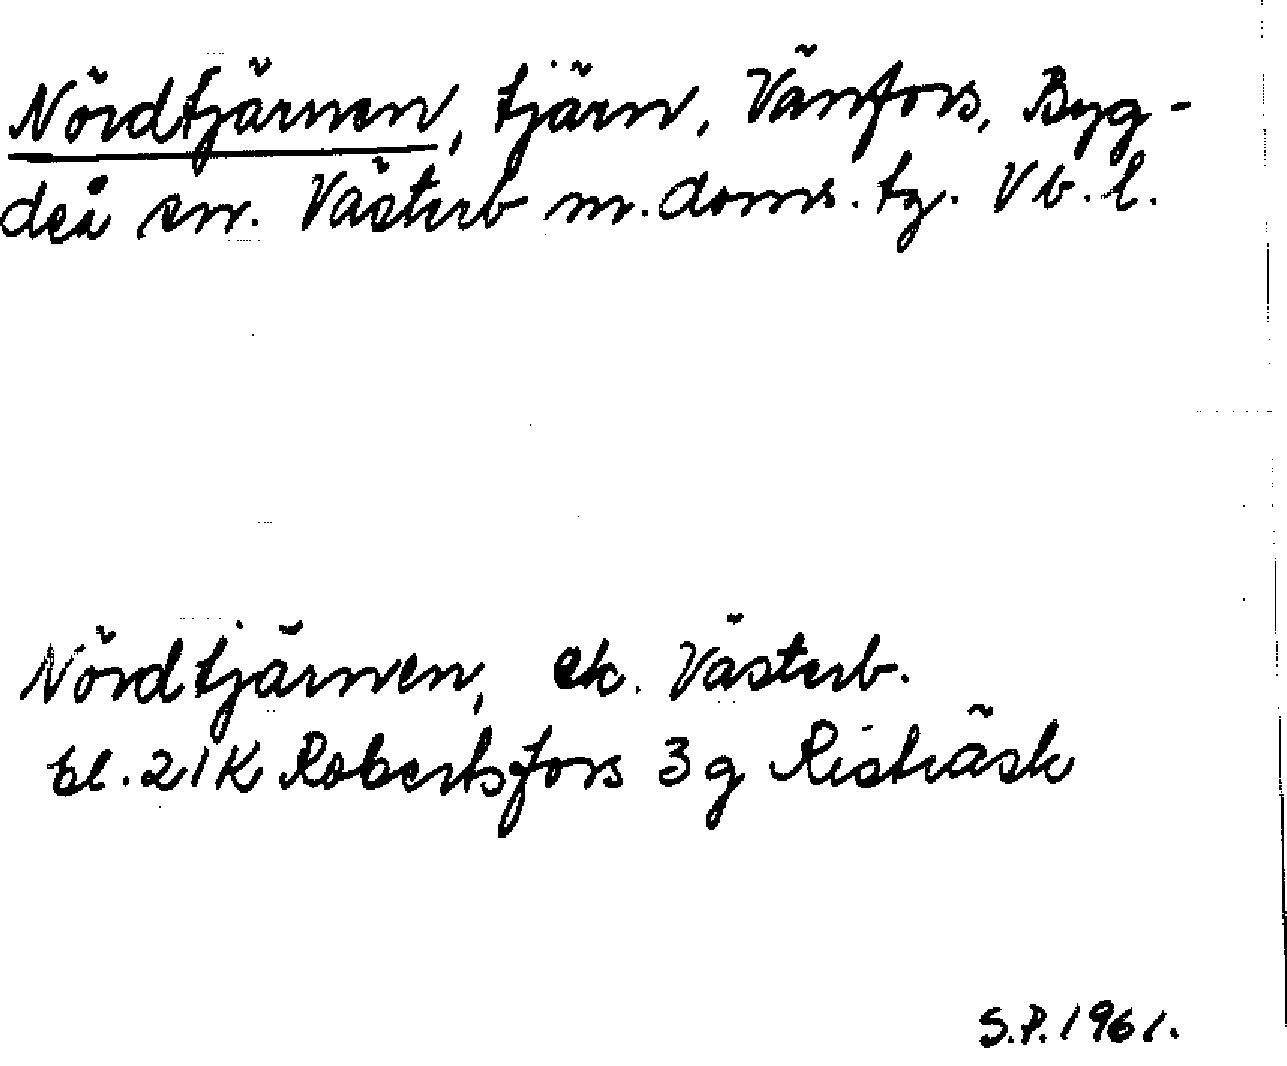 Nördtjärnen, tjärn, Vänfors, Byg-
deå sn. Västerb m. doms. tg. Vb. l.
Nördtjärnen, ek. Västerb.
bl. 21K Robertsfors 3 g Risträsk
S.P. 1961.